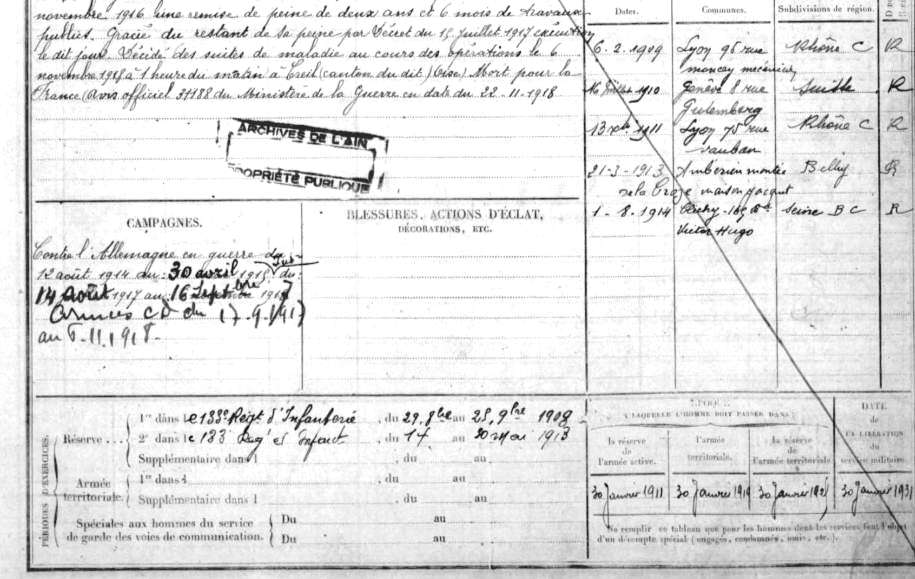 novembre 1916 une remise de peine de deux ans et 6 mois de travaux
publics. Gracié du restant de sa peine par Décret du 15 Juillet 1917 exécution
le dit jour. Décédé des suites de maladie au cours des opérations le 6
novembre 1918 à 1 heure du matin à Creil (canton du dit) (Oise) Mort pour la
France (Avis officiel du Ministère de la Guerre en date du 22-11-1918
ARCHIVES DE L'AIN
PROPRIÉTÉ PUBLIQUE
Dates. Communes. Subdivisions de région.
6.2.1909 Lyon 95 rue Rhône C R
moncey mécanicien
1910 Genève 8 rue Suisse R
Gutemberg
13 1911 Lyon 75 rue Rhône C R
vauban
21-3-1913 Ambérieu montée Belley R
de la maison Jacquet
1-8-1914 Clichy Seine B C R
Victor Hugo
CAMPAGNES.
Contre l'Allemagne en guerre du
12 août 1914 au 30 avril 1915 du
14 août 1917 au 16 Septbre 1917
Armées CD du 17.9.1917
au 6.11.1918.
BLESSURES, ACTIONS D'ÉCLAT,
DÉCORATIONS, ETC.
PÉRIODES D'EXERCICES.
Réserve ... 1re dans le 133e Régt d'Infanterie , du 29, 8bre au 25, 9bre 1909
2e dans le 133 Reg d'Infant , du 14 au 30 mai 1913
Supplémentaire dans l , du au
Armée territoriale. 1re dans l , du au
Supplémentaire dans l , du au
Spéciales aux hommes du service
de garde des voies de communication. Du au
Du au
À LAQUELLE L'HOMME DOIT PASSER DANS :
la réserve de l'armée active. l'armée territoriale. la réserve de l'armée territoriale
DATE de LA LIBÉRATION du service militaire.
30 Janvier 1911 30 Janvier 30 Janvier 30 Janvier
No remplir ce tableau que pour les hommes dont les services font l'objet
d'un décompte spécial (engagés, condamnés, omis, etc.).